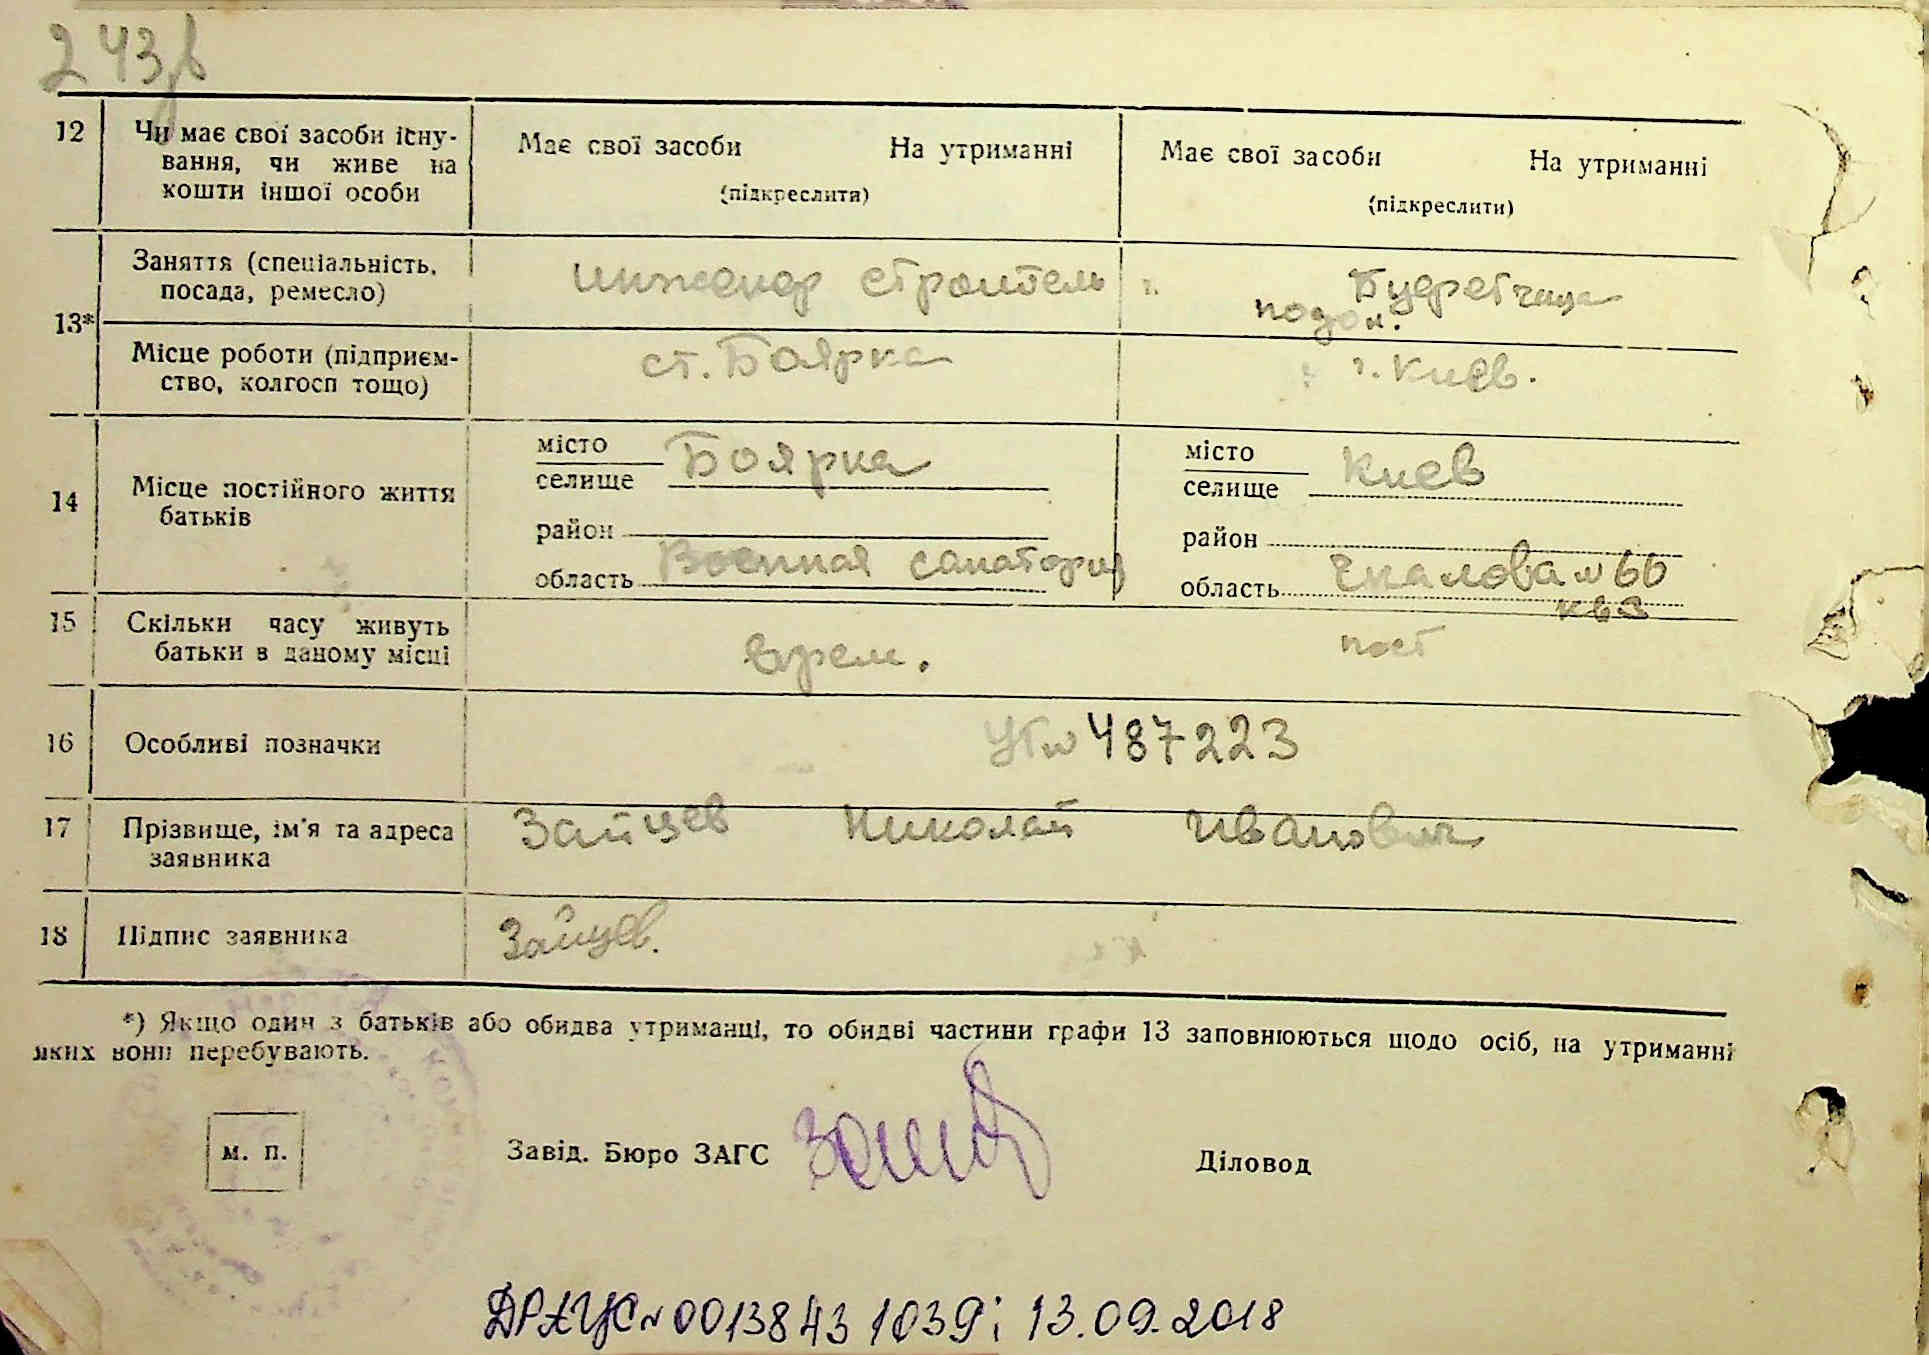 243
12
Чи має свої засоби існу-
вання, чи живе на
кошти іншої особи
Має свої засоби На утриманні
(підкреслити)
Має свої засоби На утриманні
(підкреслити)
13*
Заняття (спеціальність,
посада, ремесло)
инженер строитель
подом.
Місце роботи (підприєм-
ство, колгосп тощо)
ст. Боярка
г. Киев.
14
Місце постійного життя
батьків
місто
селище
Боярка
район
область
Военная санатория
місто
селище
Киев
район
область
Чкалова № 66
кв 3
15
Скільки часу живуть
батьки в даному місці
врем.
пост
16
Особливі позначки
487223
17
Прізвище, ім'я та адреса
заявника
Зайцев Николай Иванович
18
Підпис заявника
Зайцев.
*) Якщо один з батьків або обидва утриманці, то обидві частини графи 13 заповнюються щодо осіб, на утриманні
яких вони перебувають.
м. п.
Завід. Бюро ЗАГС
Діловод
ДРАЦС № 00138431039; 13.09.2018